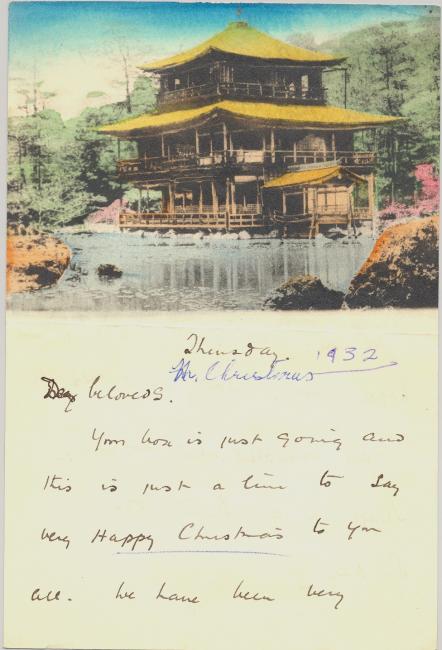 Thursday. 1932
Christmas
Dear beloveds.
Your box is just going and
this is just a line to say
very Happy Christmas to you
all. We have been very